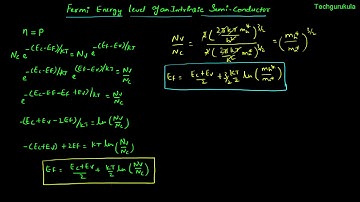 Fermi Energy level of an Intrinsic Semi-Conductor
Techgurukula
n = P
Nc e^-(Ec-Ef)/KT = Nv e^-(Ef-Ev)/KT
e^-(Ec-Ef)/KT e^(Ef-Ev)/KT = Nv/Nc
e^-(Ec-Ef-Ef+Ev)/KT = Nv/Nc
-(Ec+Ev-2Ef)/KT = ln(Nv/Nc)
-(Ec+Ev)+2Ef = KT ln(Nv/Nc)
Ef = (Ec+Ev)/2 + KT/2 ln(Nv/Nc)
Nv/Nc = 2(2πKT mh*/h²)^3/2 / 2(2πKT me*/h²)^3/2 = (mh*/me*)^3/2
Ef = (Ec+Ev)/2 + 3/2 KT/2 ln(mh*/me*)